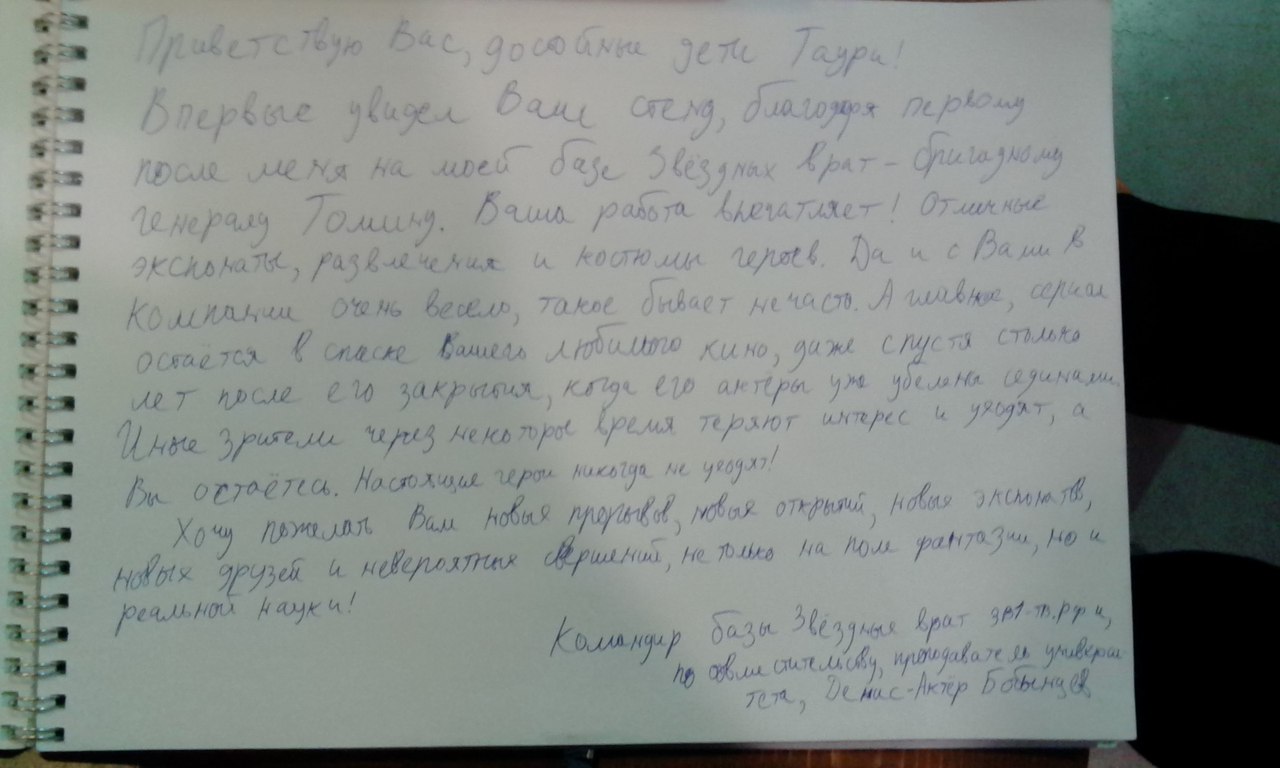 Приветствую Вас, достойные дети Таури!
Впервые увидел Ваш стенд, благодаря первому
после меня на моей базе Звёздных врат – бригадному
генералу Томину. Ваша работа впечатляет! Отличные
экспонаты, развлечения и костюмы героев. Да и с Вами в
компании очень весело, такое бывает нечасто. А главное, сериал
остаётся в списке Вашего любимого кино, даже спустя столько
лет после его закрытия, когда его актёры уже убелены сединами.
Иные зрители через некоторое время теряют интерес и уходят, а
Вы остаётесь. Настоящие герои никогда не уходят!
Хочу пожелать Вам новых прорывов, новых открытий, новых экспонатов,
новых друзей и невероятных свершений, не только на поле фантазии, но и
реальной науки!
Командир базы Звёздных врат зв1-тв.рф и,
по совместительству, преподаватель университета
тета, Денис-Актёр